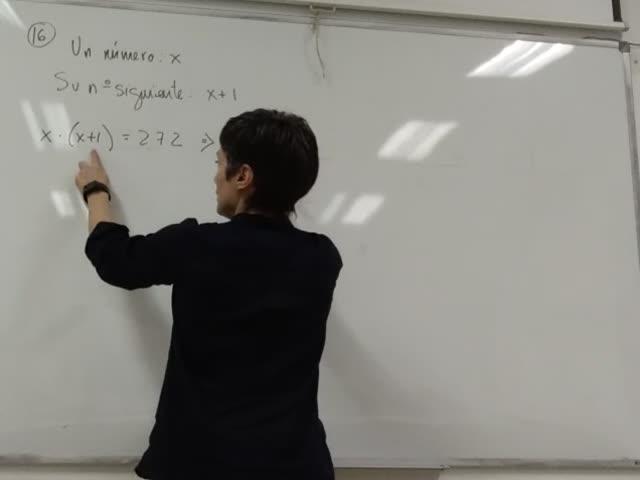 16
Un número: x
Su nº siguiente: x+1
x · (x+1) = 272 ⇒